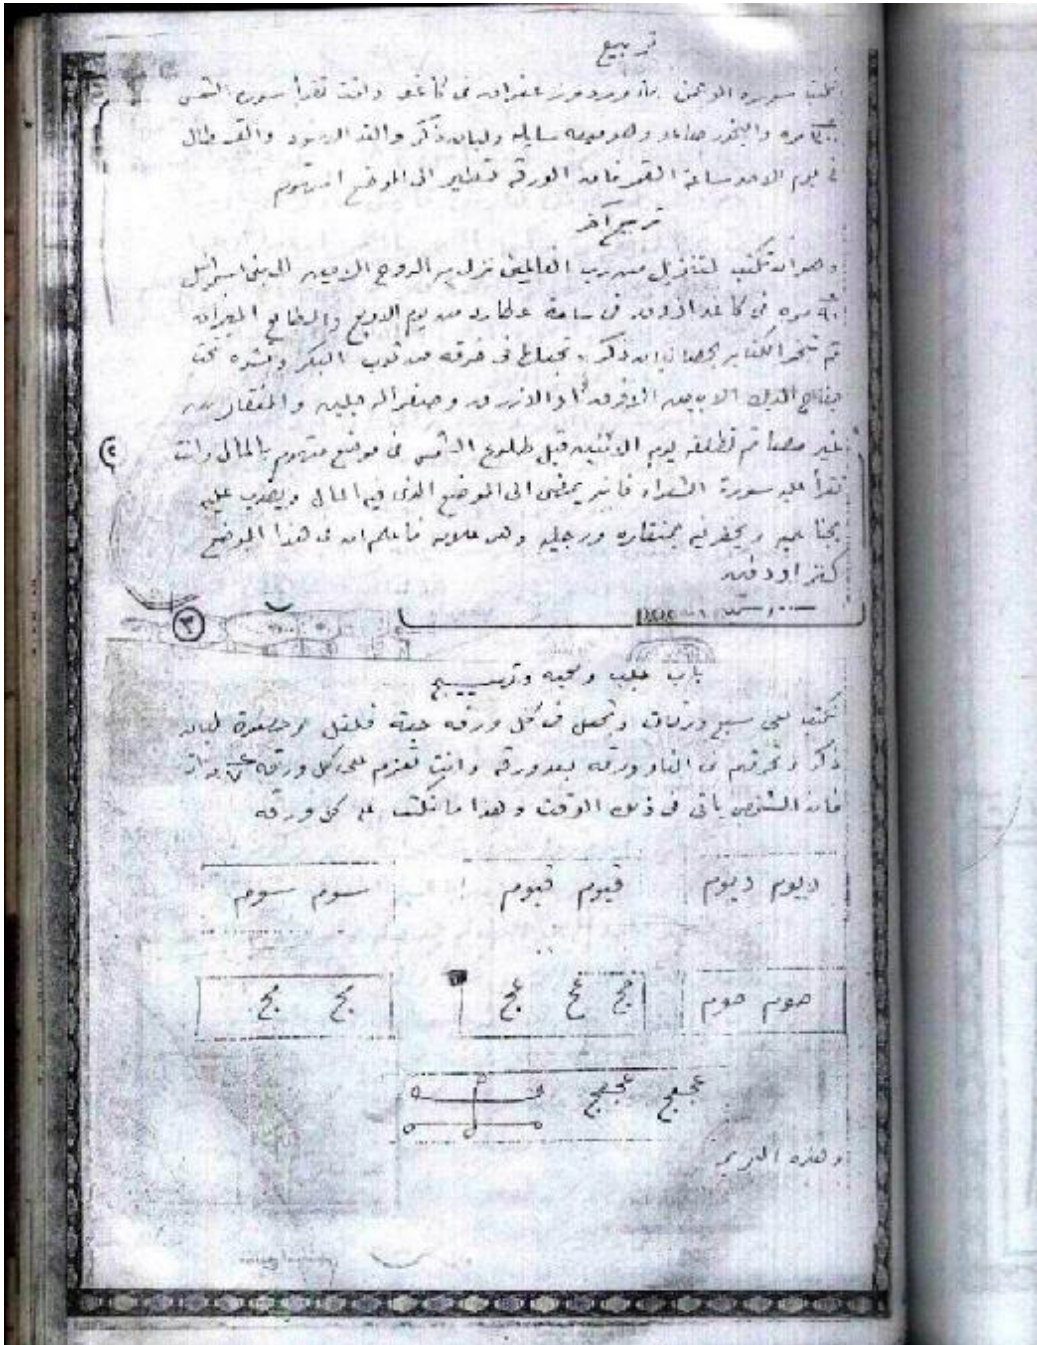 تربيع
تكتب سورة الرحمن بماء ورد وزعفران فى كاغد وانت تقرأ سورة الشمس
مره والبخور صاعد وهو ميعه سايله ولبان ذكر والند الاسود والقسطال
فى يوم الاحد ساعة القمر فان الورقه تطير الى الموضع المتهوم
تربيع آخر
وهو ان تكتب لتنزيل من رب العالمين نزل به الروح الامين الى بنى اسرائيل
مره فى كاغد ازرق فى ساعة عطارد من يوم الاربع والطالع الميزان
ثم تبخر الكتاب بحصا لبان ذكر وتجعله فى خرقه من ثوب البكر وتشده تحت
جناح الديك الابيض الافرق او الازرق وصفر الرجلين والمنقار من
غير مصا ثم تطلقه يوم الاثنين قبل طلوع الشمس فى موضع متهوم بالمال وانت
٢
تقرأ عليه سورة الشعراء فانه يمضى الى الموضع الذى فيه المال ويضرب عليه
بجناحيه ويحفر فيه بمنقاره ورجليه وهى علامه فاعلم ان فى هذا الموضع
كنز او دفين
٣
باب جلب ومحبه وتهييج
تكتب على سبع ورقات وتجعل فى كل ورقه حبة فلفل وحصوة لبان
ذكر وتحرقهم فى النار ورقه بعد ورقه وانت تعزم على كل ورقه ٧ مرات
فان الشخص ياتى فى ذلك الوقت وهذا ما تكتب على كل ورقه
ديوم ديوم قيوم قيوم سوم سوم
حوم حوم عج عج مج مج
عجعج عجعج
وهذه